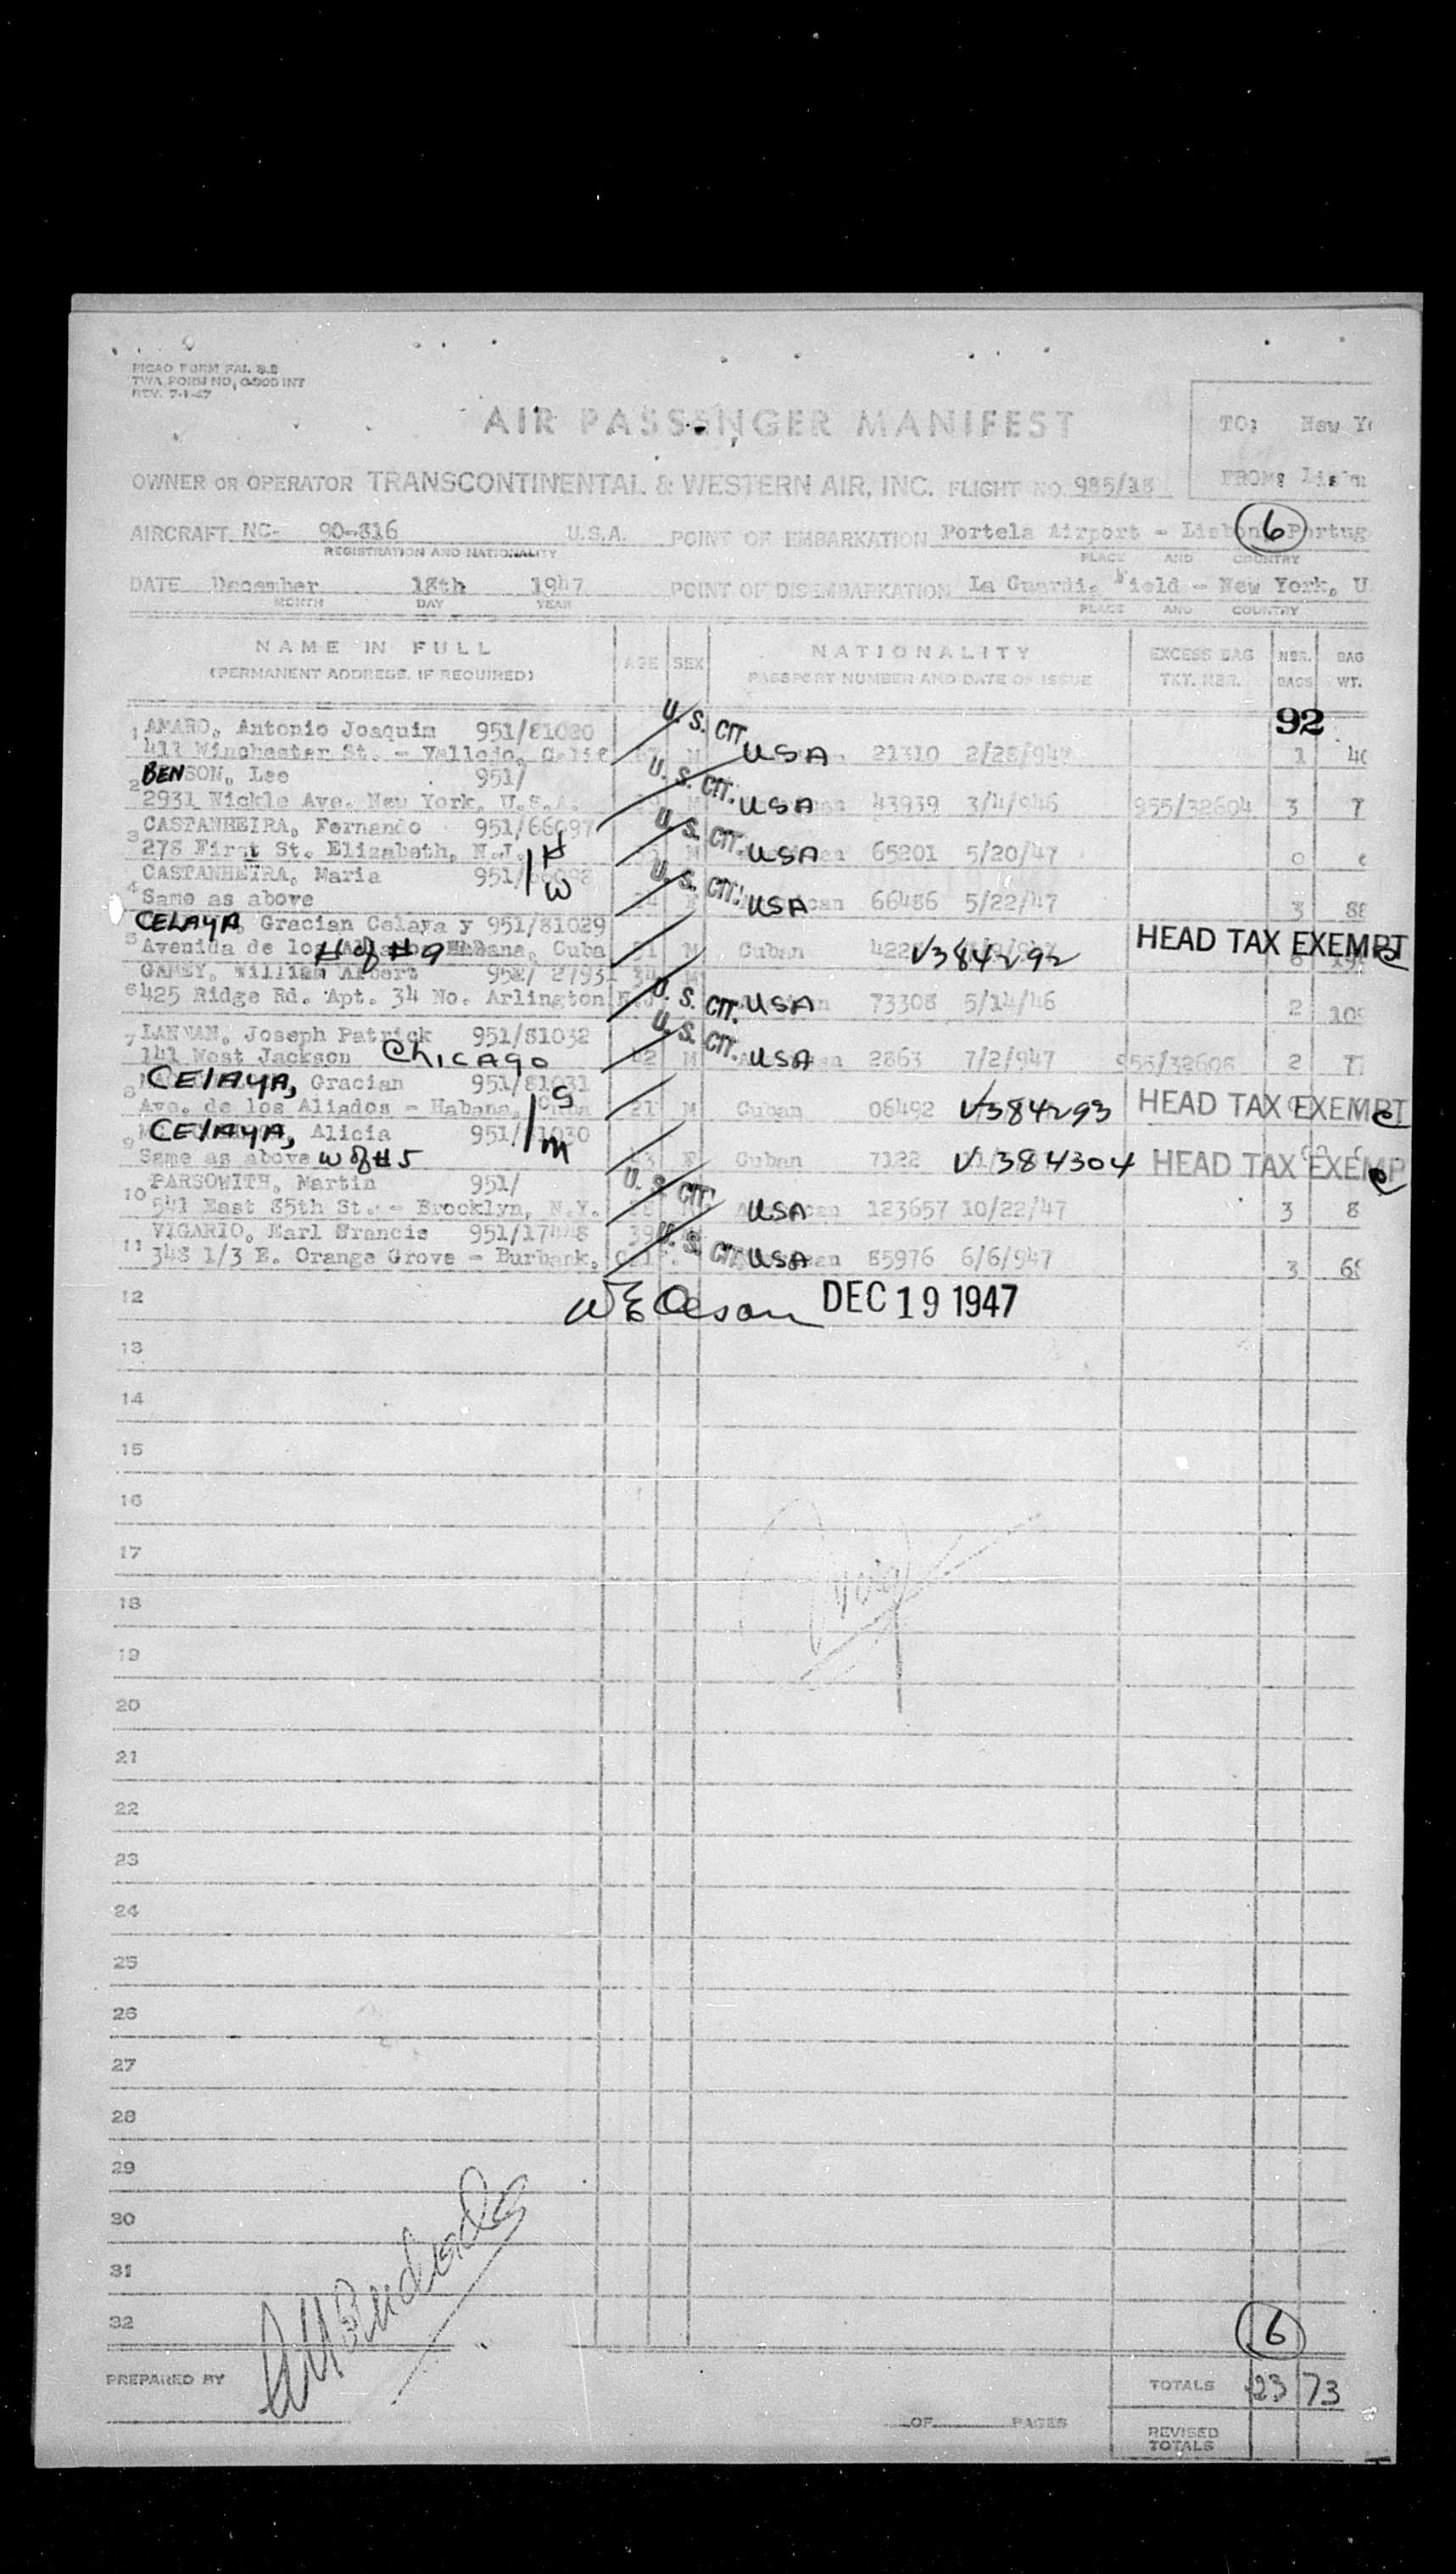 PICAO FORM FAL 8.2
TWA FORM NO. INT
REV. 7-1-47
AIR PASSENGER MANIFEST
TO: New Y
FROM: Lis
OWNER OR OPERATOR TRANSCONTINENTAL & WESTERN AIR, INC. FLIGHT NO.
AIRCRAFT NC- 90-816 U.S.A. POINT OF EMBARKATION Portela Airport - Lisbon, Portug
6
REGISTRATION AND NATIONALITY PLACE AND COUNTRY
DATE December 18th 1947 POINT OF DISEMBARKATION La Guardia Field - New York, U.
MONTH DAY YEAR PLACE AND COUNTRY
NAME IN FULL AGE SEX NATIONALITY EXCESS BAG NBR. BAG
(PERMANENT ADDRESS, IF REQUIRED) PASSPORT NUMBER AND DATE OF ISSUE TKT. NBR. BAGS WT.
92
1 AMARO, Antonio Joaquim 951/81020 U. S. CIT.
411 Winchester St. - Vallejo, Calif M USA 21310 2/28/947 1
2 BENSON, Lee 951/ U. S. CIT.
2931 Wickle Ave. New York, U.S.A. M USA 43939 3/4/946 955/32604 3
3 CASTANHEIRA, Fernando 951/66097 U. S. CIT.
278 First St. Elizabeth, N.J. H M USA 65201 5/20/47 0
4 CASTANHEIRA, Maria 951/ W U. S. CIT.
Same as above F USA 66486 5/22/47 3
5 CELAYA, Gracian Celaya y 951/81029 HEAD TAX EXEMPT
Avenida de los Habana, Cuba H of #9 M Cuban V384292
6 GAMEY, William Albert 952/ 2793 34 M
425 Ridge Rd. Apt. 34 No. Arlington N.J. U. S. CIT. USA 73308 5/14/46 2
7 LANNAN, Joseph Patrick 951/81032 U. S. CIT.
141 West Jackson Chicago 42 M USA 2863 7/2/947 955/32606 2
8 CELAYA, Gracian 951/81031 S
Ave. de los Aliados - Habana, Cuba 21 M Cuban 06492 V384293 HEAD TAX EXEMPT
9 CELAYA, Alicia 951/81030 M
Same as above W of #5 F Cuban 7122 V 384304 HEAD TAX EXEMP
10 PARSOWITH, Martin 951/ U. S. CIT.
541 East 85th St. - Brooklyn, N.Y. USA 123657 10/22/47 3
11 VIGARIO, Earl Francis 951/17448 39 U. S. CIT.
348 1/3 E. Orange Grove - Burbank, USA 85976 6/6/947 3
12 DEC 19 1947
13
14
15
16
17
18
19
20
21
22
23
24
25
26
27
28
29
30
31
32
6
PREPARED BY TOTALS 23 73
OF PAGES
REVISED
TOTALS